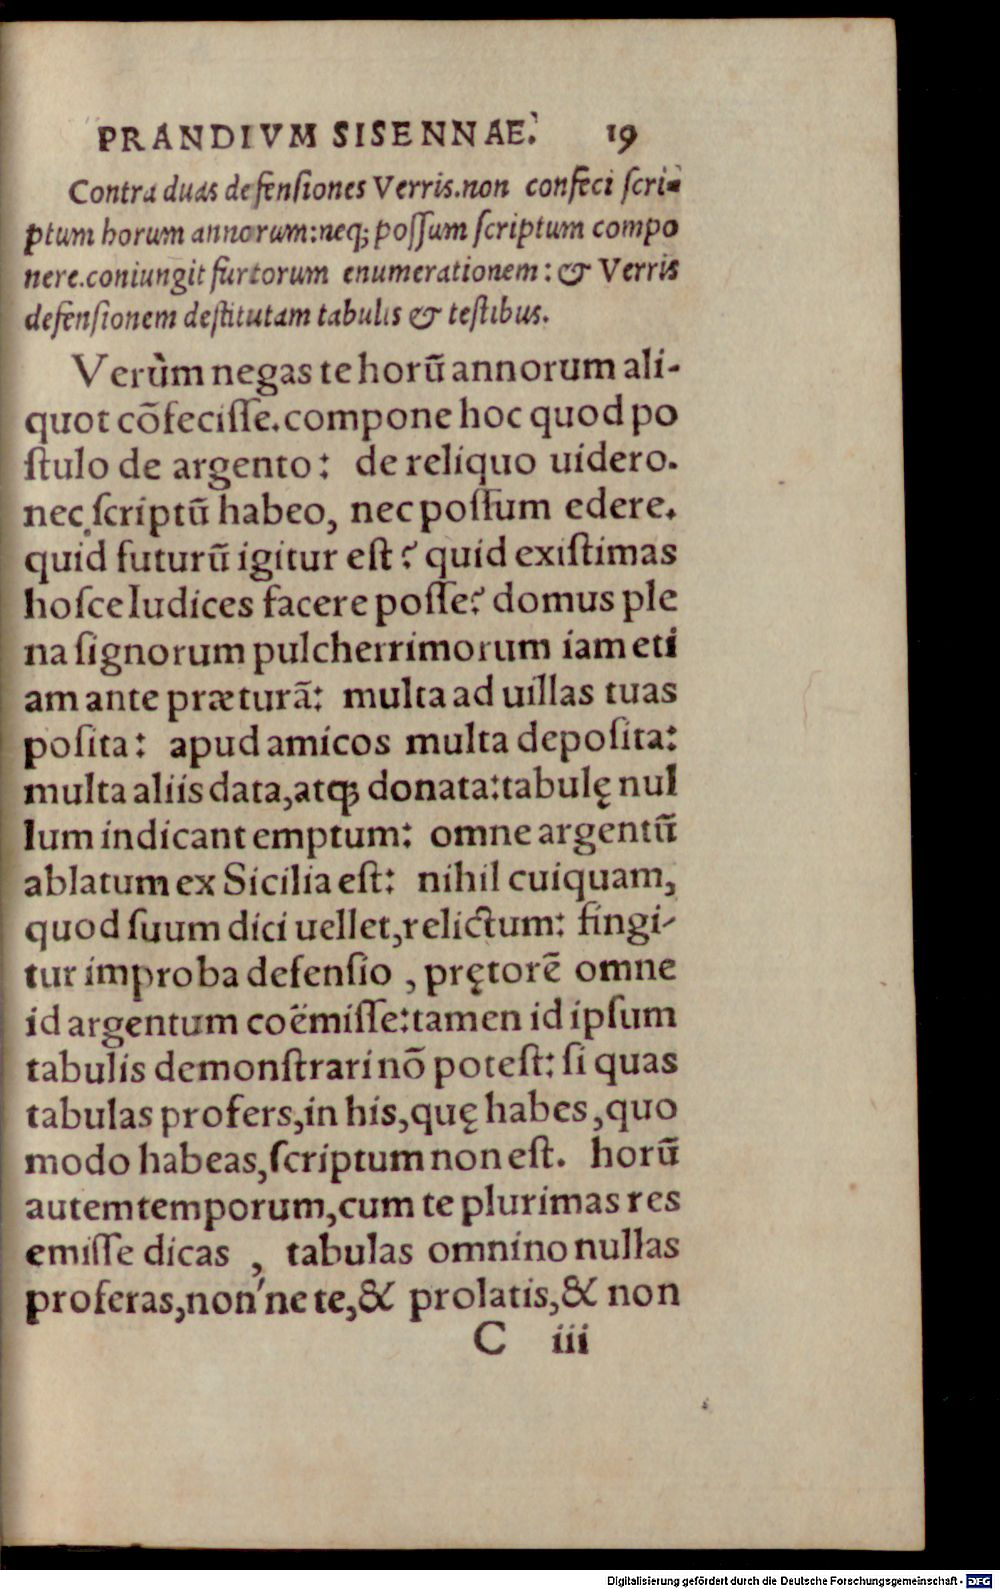 PRANDIVM SISENNAE. 19
Contra duas defensiones Verris.non confeci scri-
ptum horum annorum:neq; possum scriptum compo
nere.coniungit furtorum enumerationem: & Verris
defensionem destitutam tabulis & testibus.
Verùm negas te horũ annorum ali-
quot cõfecisse.compone hoc quod po
stulo de argento: de reliquo uidero.
nec scriptũ habeo, nec possum edere.
quid futurũ igitur est? quid existimas
hosce Iudices facere posse? domus ple
na signorum pulcherrimorum iam eti
am ante præturã: multa ad uillas tuas
posita: apud amicos multa deposita:
multa aliis data,atq; donata:tabulę nul
lum indicant emptum: omne argentũ
ablatum ex Sicilia est: nihil cuiquam,
quod suum dici uellet,relictum: fingi-
tur improba defensio , prętorẽ omne
id argentum coëmisse:tamen id ipsum
tabulis demonstrari nõ potest: si quas
tabulas profers,in his,quę habes,quo
modo habeas,scriptum non est. horũ
autem temporum,cum te plurimas res
emisse dicas , tabulas omnino nullas
proferas,non'ne te,& prolatis,& non
C iii
Digitalisierung gefördert durch die Deutsche Forschungsgemeinschaft - DFG